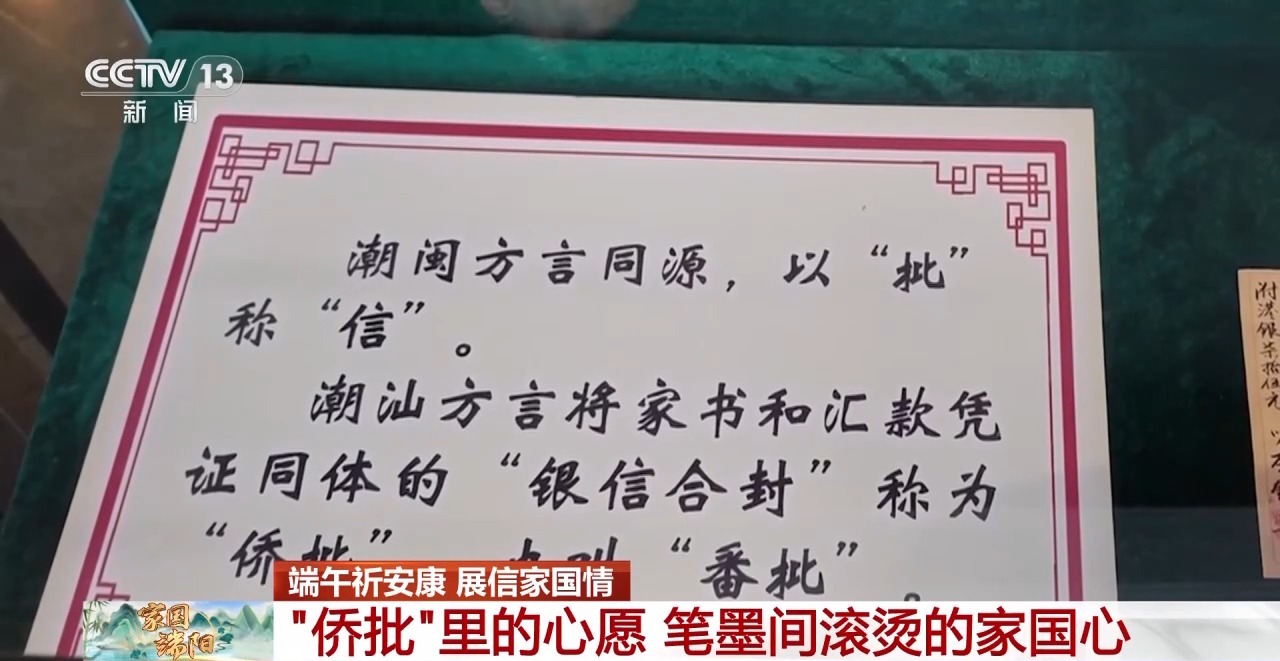 CCTV 13
新闻
潮闽方言同源，以“批”
称“信”。
潮汕方言将家书和汇款凭
证同体的“银信合封”称为
“侨批” “番批”。
附港银柒拾伍元
端午祈安康 展信家国情
家国
端阳
"侨批"里的心愿 笔墨间滚烫的家国心